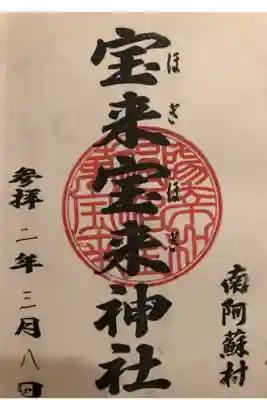 南阿蘇村
宝来宝来神社
ほぎほぎ
参拝二年三月八日